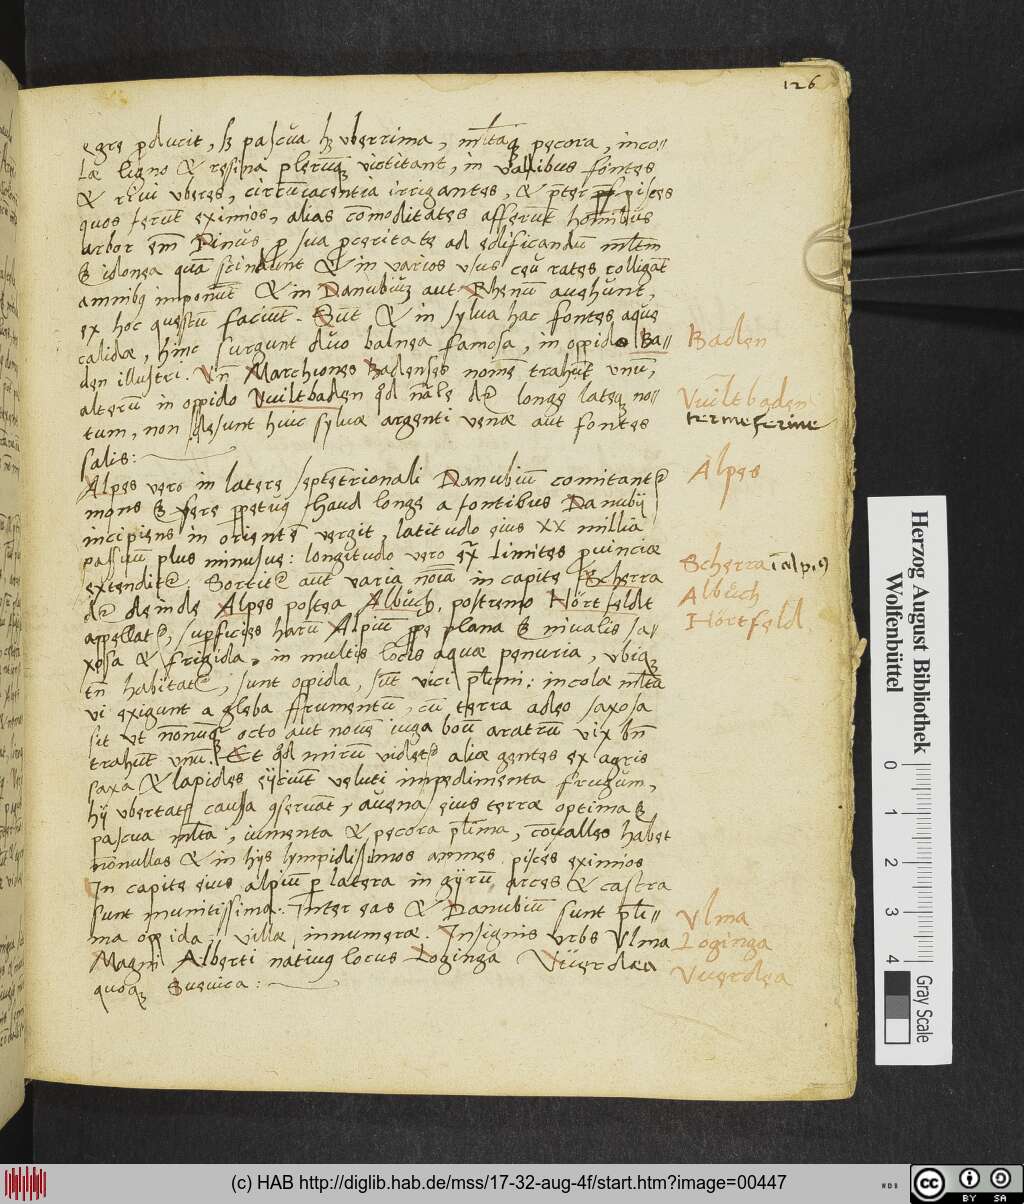 126
egre ꝑducit, sꝫ pascua hꝫ vberrima, ml̄taqꝫ pecora, inco-
læ ligno & resina pleruqꝫ victitant, in vallibus fontes
& riui vberes, circūiacentia irrigantes, & p̄ter pisces
quos ferūt eximios, alias cōmoditates afferūt hominibus
arbor em̄ Pinus ꝓ sua ꝓceritate ad edificandū ml̄tm
ē idonea quā scindunt & in varios vsus ceu rates colligāt
amnibꝰ imponūt & in Danubiū aut Rhenū auehunt,
ex hoc questū faciūt. Sūt & in sylua hac fontes aque
calidæ, hinc surgunt duo balnea famosa, in oppido Ba-
den illustri. Vn̄ Marchiones Badenses nomē trahūt vnū,
alterū in oppido Vuiltbaden qd̄ nāle dr̄ longe lateqꝫ no-
tum, non desunt huic syluæ argenti venæ aut fontes
salis:
Alpes vero in latere septētrionali Danubiū comitantr̄
mons ē fere ꝑpetuꝰ haud longe a fontibus Danubij
incipiens in orientē vergit, latitudo eius XX millia
passuū plus minusue: longitudo vero ex̄ limites ꝓuinciæ
extenditr̄ Sortitr̄ aut varia noīa in capite Scherra
dr̄ deinde Alpes postea Albuch, postremo Hörtfeldt
appellatr̄, suꝑficies harū Alpiū ꝓpe plana ē niualis sa-
xosa & frigida, in multis locis aquæ penuria, vbiqꝫ
tn̄ habitatr̄, sunt oppida, sūt vici pl̄imi: incolæ ml̄ta
vi exigunt a gleba frumentū, cū terra adeo saxosa
sit vt nōnunqꝫ octo aut nouē iuga boū aratrū vix bn̄
trahūt vnū. Et qd̄ mirū videtr̄ aliæ gentes ex agris
saxa & lapides eijciūt veluti impedimenta frugum,
hij vbertatis causa ꝯseruāt, auena eius terræ optima ē
pascua ml̄ta, iumenta & pecora pl̄ima, cōualles habet
nōnullas & in hijs lympidissimos amnes pisces eximios
In capite eius alpiū ꝑ latera in gijrū arces & castra
sunt munitissima. Inter eas & Danubiū sunt pl̄i-
ma oppida, villæ innumeræ. Insignis vrbs Vlma
Magni Alberti natiuꝰ locus Loginga Vuerdea
quoqꝫ Sueuica:
Baden
Vuiltbaden
terme ferine
Alpes
Scherra
Albuch
Hörtfeld
Vlma
Loginga
Vuerdea
Herzog August Bibliothek
Wolfenbüttel
0 1 2 3 4
Gray Scale
(c) HAB http://diglib.hab.de/mss/17-32-aug-4f/start.htm?image=00447
cc BY SA